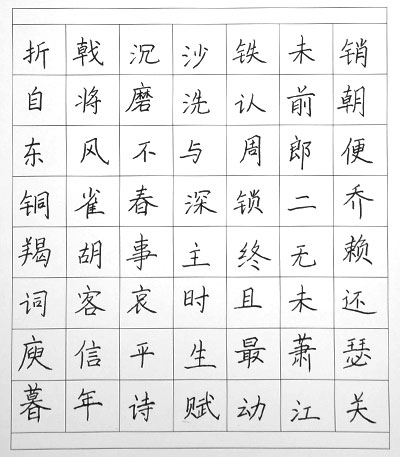 折戟沉沙铁未销
自将磨洗认前朝
东风不与周郎便
铜雀春深锁二乔
羯胡事主终无赖
词客哀时且未还
庾信平生最萧瑟
暮年诗赋动江关